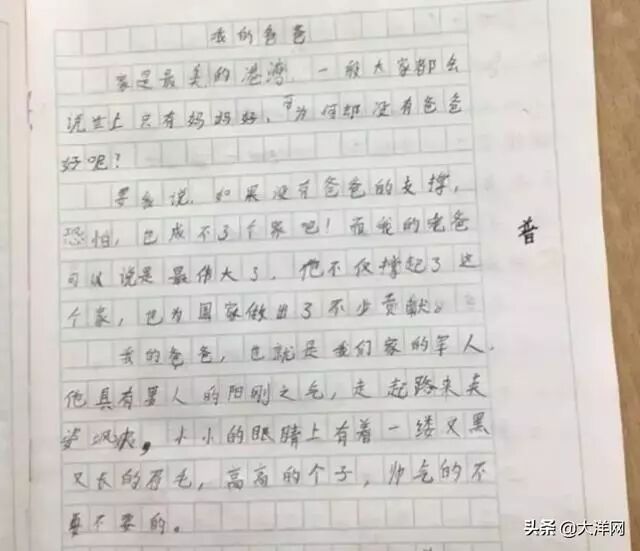 我的爸爸
家是最美的港湾，一般大家都会
说世上只有妈妈好，可为何却没有爸爸
好呢？
要我说，如果没有爸爸的支撑，
恐怕，也成不了个家吧！而我的老爸
可以说是最伟大了，他不仅撑起了这
个家，也为国家做出了不少贡献。
普
我的爸爸，也就是我们家的军人，
他具有男人的阳刚之气，走起路来英
姿飒爽，小小的眼睛上有着一缕又黑
又长的眉毛，高高的个子，帅气的不
要不要的。
头条 @大洋网